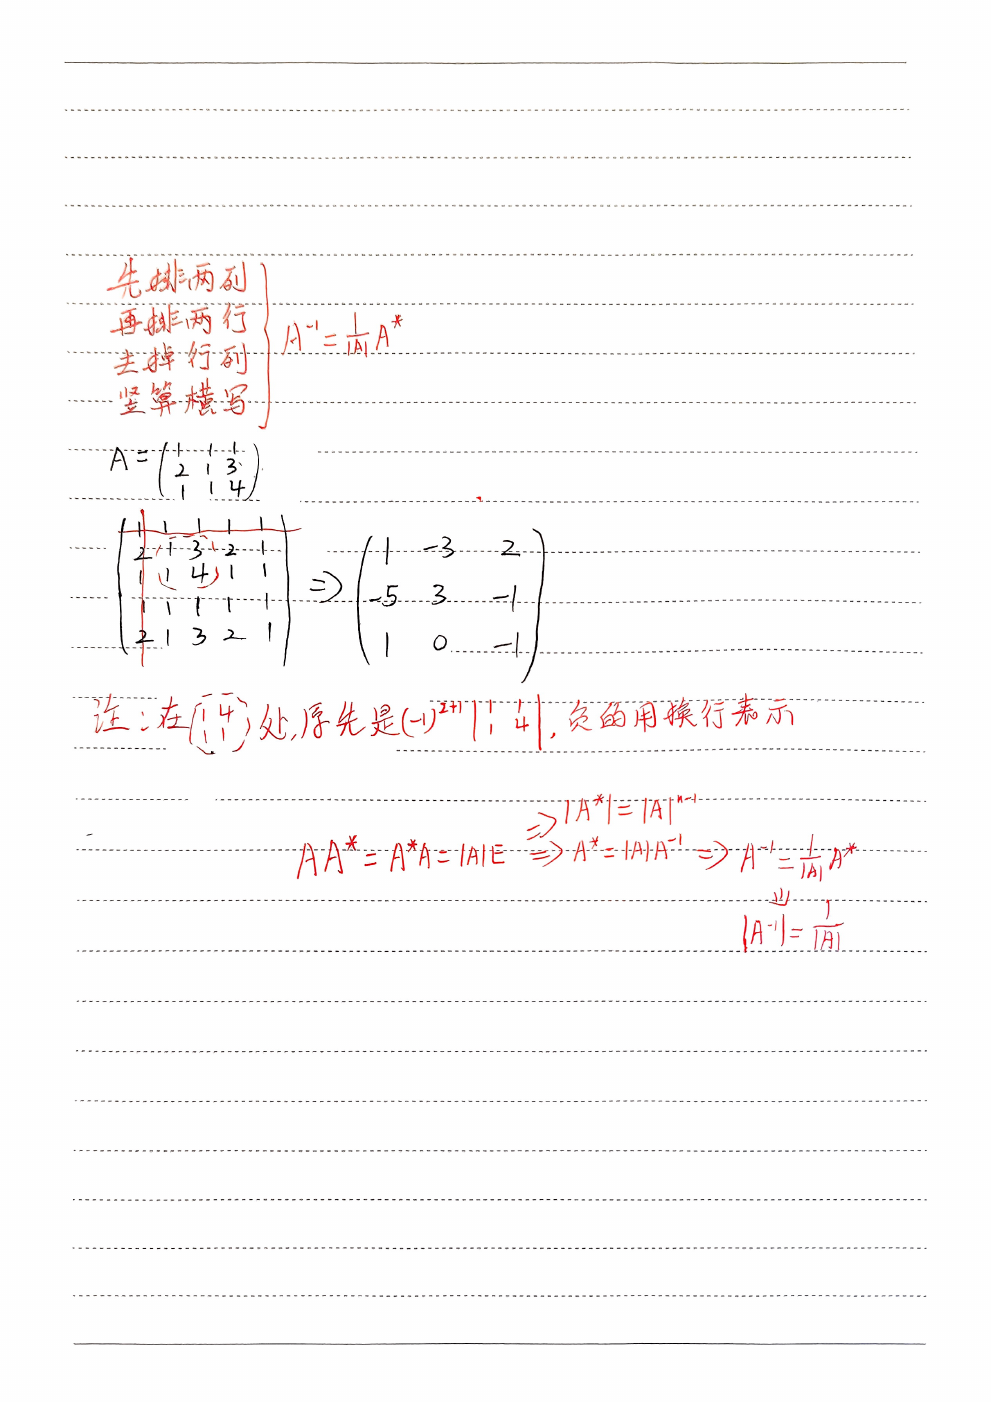 先排两列
再排两行
去掉行列
竖算横写
A⁻¹ = 1/|A| A*
A = ( 1 1 1
2 1 3
1 1 4 )
1 1 1 1 1
2 1 3 2 1
1 1 4 1 1
1 1 1 1 1
2 1 3 2 1
⇒
1 -3 2
-5 3 -1
1 0 -1
注:在(1 4
1 1)处,原先是(-1)²⁺¹|1 1
1 4|,负的用换行表示
⇒ |A*| = |A|ⁿ⁻¹
AA* = A*A = |A|E ⇒ A* = |A|A⁻¹ ⇒ A⁻¹ = 1/|A| A*
⇓
|A⁻¹| = 1/|A|